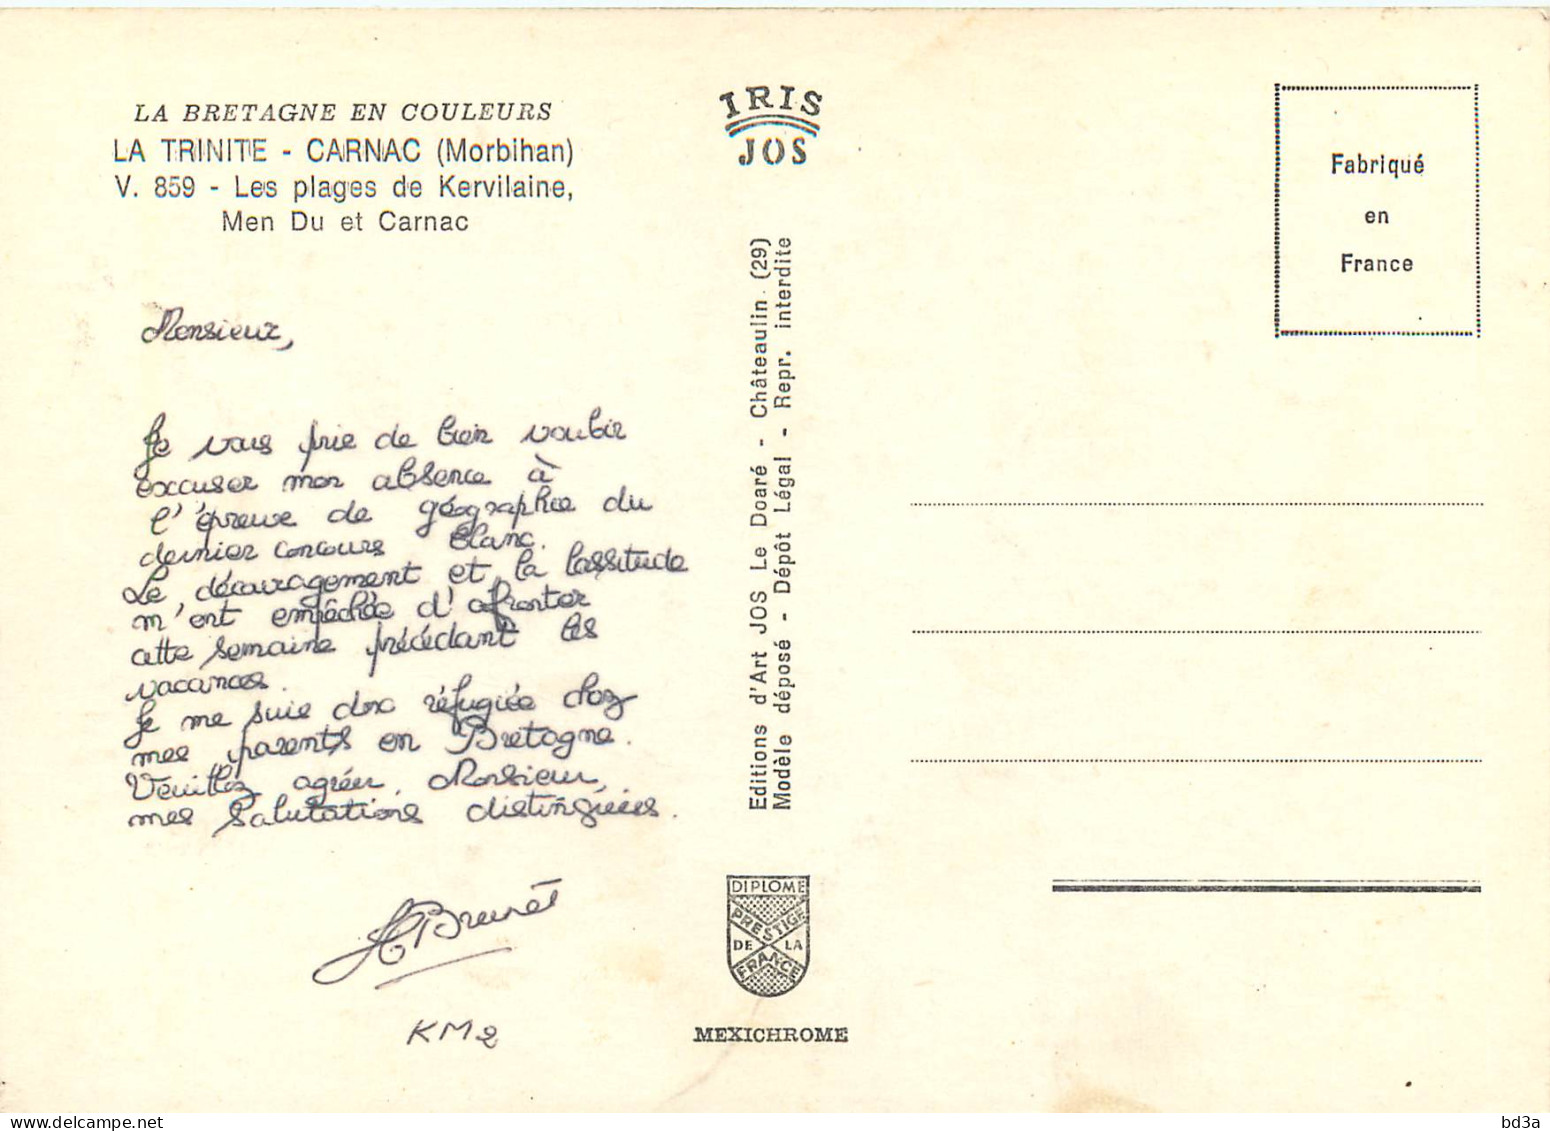 LA BRETAGNE EN COULEURS
LA TRINITE - CARNAC (Morbihan)
V. 859 - Les plages de Kervilaine,
Men Du et Carnac
Monsieur,
Je vous prie de bien vouloir
excuser mon absence à
l'épreuve de géographie du
dernier concours blanc.
Le découragement et la lassitude
m'ont empêchée d'affronter
cette semaine précédant les
vacances.
Je me suis donc réfugiée chez
mes parents en Bretagne.
Veuillez agréer, Monsieur,
mes salutations distinguées.
Brunet
KM2
IRIS
JOS
Editions d'Art JOS Le Doaré - Châteaulin (29)
Modèle déposé - Dépôt Légal - Repr. interdite
DIPLOME
PRESTIGE
DE LA
FRANCE
MEXICHROME
Fabriqué
en
France
bd3a